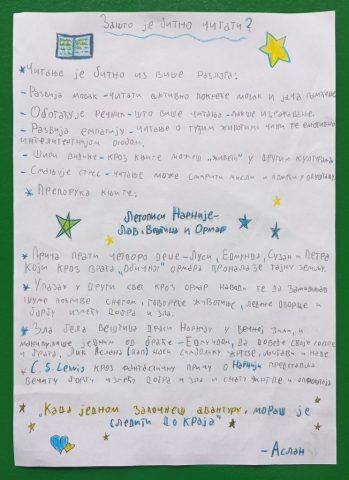 Зашто је битно читати?
*Читање је битно из више разлога:
- Развија мозак - читати активно покреће мозак и јача памћење
- Обогаћује речник - што више читања - лакше изражавање.
- Развија емпатију - читање о туђим животима чини те емотивно
интелигентнијом особом.
- Шири видике - кроз књиге можеш „живети" у другим културама
- Смањује стрес - читање може смирити мисли и помоћи у опуштању.
*Препорука књиге:
Летописи Нарније-
Лав, Вештица и Орман
*Прича прати четворо деце - Луси, Едмунда, Сузан и Петра
који кроз врата „обичног" ормара проналазе тајну земљу.
*Улазак у други свет кроз орман наводи те да замишљаш
шуме покриве снегом, говореће животиње, ледене дворце и
борбу између добра и зла.
*Зла бела вештица држи Нарнију у вечној зими, и
манипулише једним од браће - Едмундом, да доведе своје сестре
и брата. Лик Аслана (лав) носи симболику жртве, љубави и наде
*C.S. Lewis кроз фантастичну причу о Нарнији представља
вечиту борбу између добра и зла и снагу жртве и опроштаја
„Када једном започнеш авантуру, мораш је
следити до краја"
-Аслан